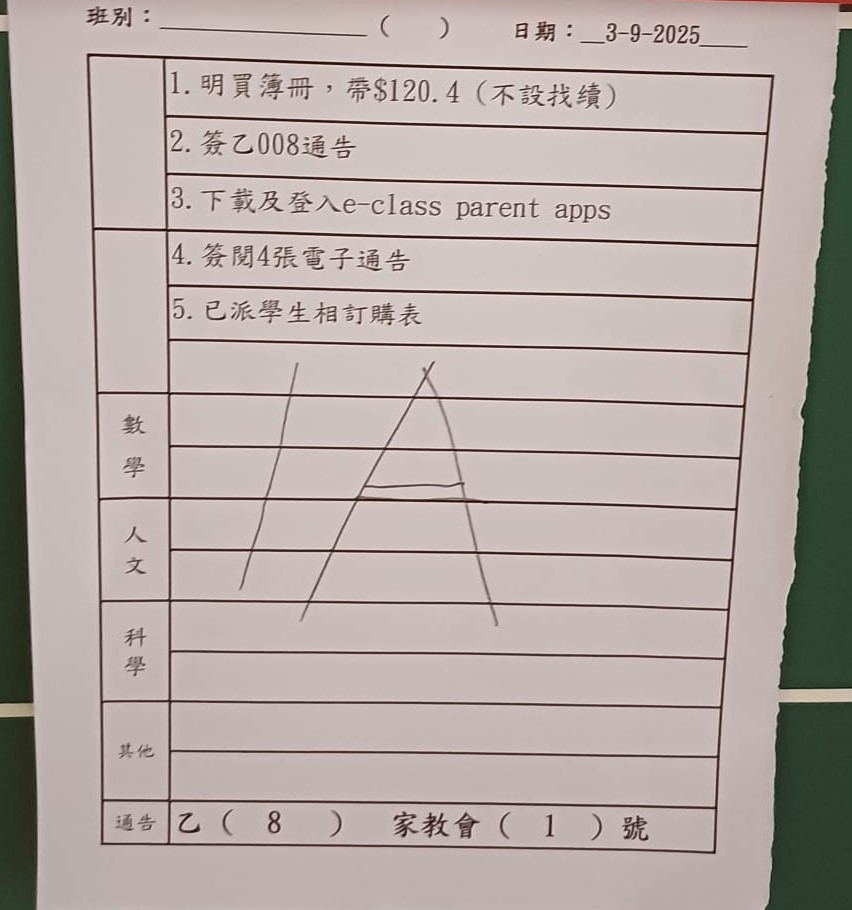 班別：______________（ ） 日期：__3-9-2025____
1. 明買簿冊，帶$120.4（不設找續）
2. 簽乙008通告
3. 下載及登入e-class parent apps
4. 簽閱4張電子通告
5. 已派學生相訂購表
1A
數學
人文
科學
其他
通告 乙（ 8 ） 家教會（ 1 ）號